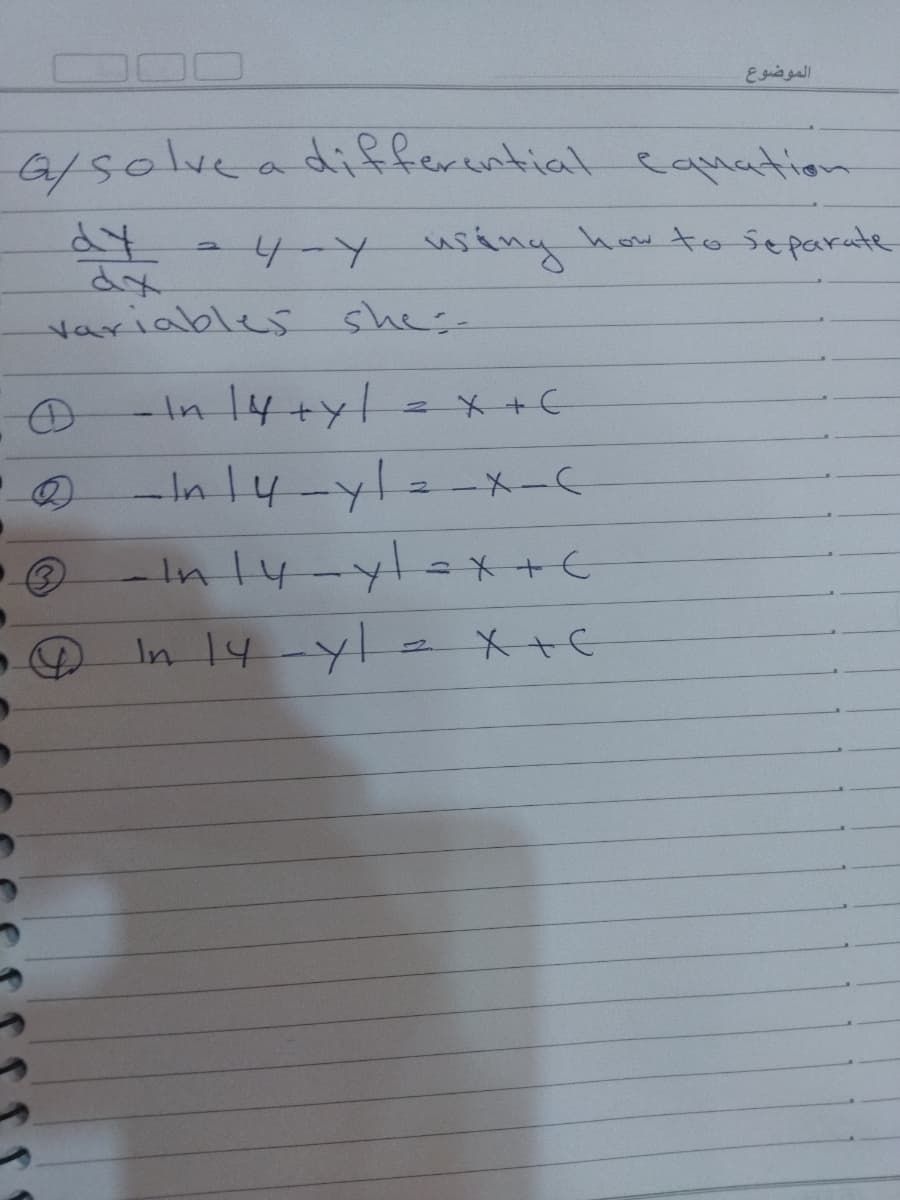 الموضوع
Q/ solve a differential equation
dy/dx = 4 - y using how to separate
variables she:-
① -ln |4+y| = x + c
② -ln |4-y| = -x-c
③ -ln |4-y| = x + c
④ ln |4-y| = x + c